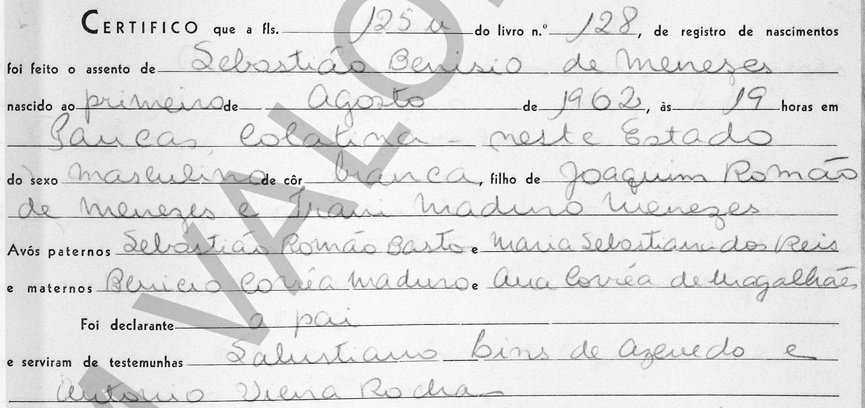 CERTIFICO que a fls. 125v do livro n.º 128, de registro de nascimentos
foi feito o assento de Sebastião Benisio de Menezes
nascido ao primeiro de Agosto de 1962, às 19 horas em
Pancas Colatina - neste Estado
do sexo masculino de côr branca, filho de Joaquim Romão
de Menezes e Irani Maduro Menezes
Avós paternos Sebastião Romão Basto e Maria Sebastiana dos Reis
e maternos Benicio Corrêa Maduro e Ana Corrêa de Magalhães
Foi declarante o pai
e serviram de testemunhas Salustiano Lins de Azevedo e
Antonio Vieira Rocha